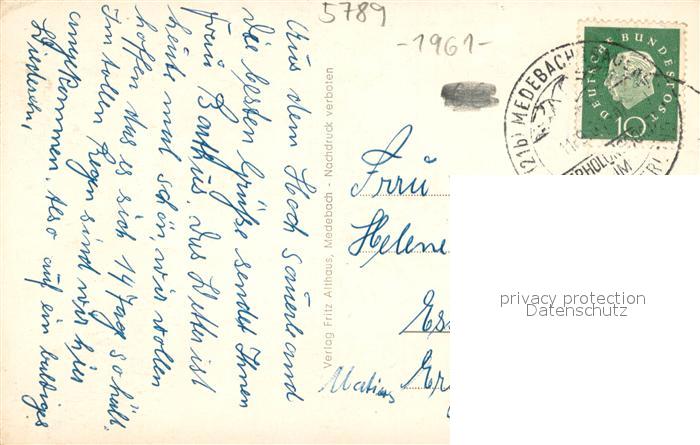 Aus dem Hoch Sauerland
die besten Grüße sendet Ihnen
Frau Bathus. Das Wetter ist
heute mal schön, wir wollen
hoffen das es sich 14 Tage so hält.
Im tollen Regen sind wir hier
angekommen. Also auf ein baldiges
Wiedersehn,
Verlag Fritz Althaus, Medebach - Nachdruck verboten
5789
-1961-
DEUTSCHE BUNDESPOST
10
(21b) MEDEBACH
IM
Frau
Helene
Es
privacy protection
Datenschutz